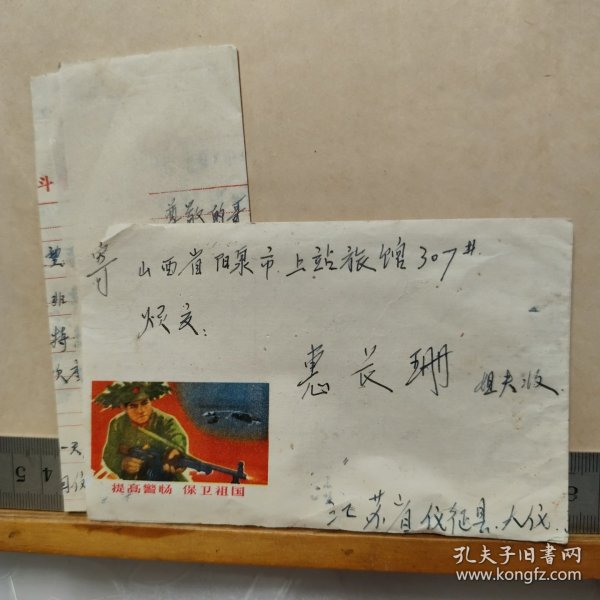 斗
尊敬的哥
望
非
特
一天
寄 山西省阳泉市上站旅馆307#
烦交:
惠长珊 姐夫收
提高警惕 保卫祖国
江苏省仪征县.人仪
4
5
孔夫子旧书网
www.kongfz.com